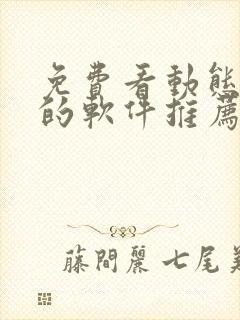 免費看動態
的軟件推薦
藤間麗 七尾美